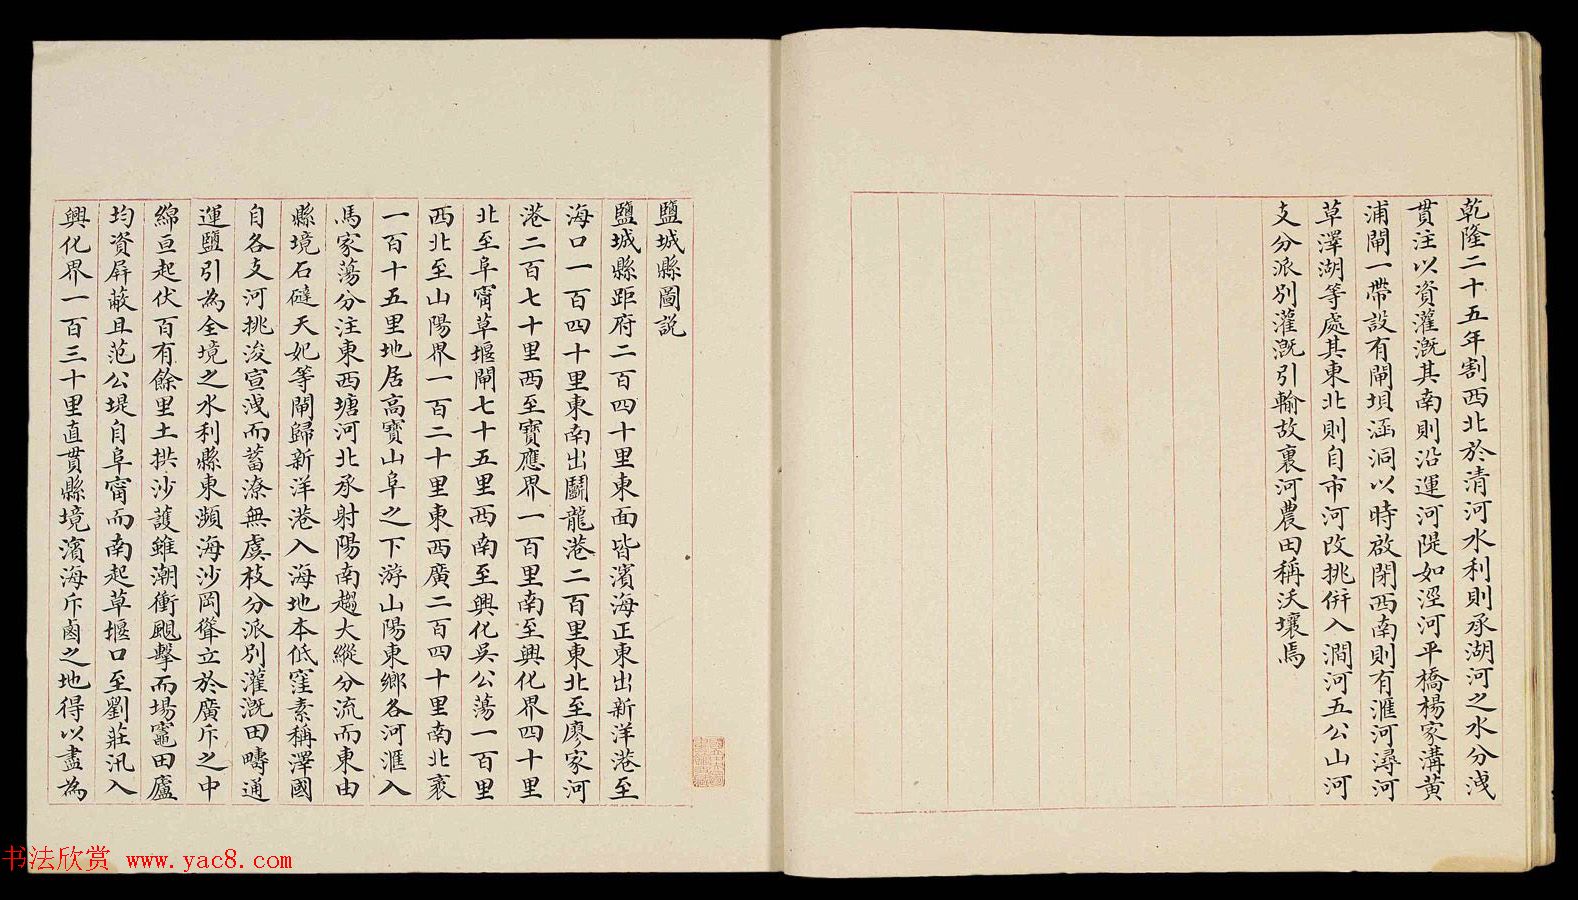 乾隆二十五年割西北於清河水利則承湖河之水分洩
貫注以資灌溉其南則沿運河隄如涇河平橋楊家溝黃
浦閘一帶設有閘壩涵洞以時啟閉西南則有滙河潯河
草澤湖等處其東北則自市河改挑併入澗河五公山河
支分派別灌溉引輸故裏河農田稱沃壤焉
鹽城縣圖説
鹽城縣距府二百四十里東面皆濱海正東出新洋港至
海口一百四十里東南出鬬龍港二百里東北至廖家河
港二百七十里西至寶應界一百里南至興化界四十里
北至阜甯草堰閘七十五里西南至興化吳公蕩一百里
西北至山陽界一百二十里東西廣二百四十里南北袤
一百十五里地居高寶山阜之下游山陽東鄉各河滙入
馬家蕩分注東西塘河北承射陽南趨大縱分流而東由
縣境石䃮天妃等閘歸新洋港入海地本低窪素稱澤國
自各支河挑浚宣洩而蓄潦無虞枝分派別灌溉田疇通
運鹽引為全境之水利縣東瀕海沙岡聳立於廣斥之中
綿亘起伏百有餘里土拱沙護雖潮衝颶擊而場竈田廬
均資屏蔽且范公堤自阜甯而南起草堰口至劉莊汛入
興化界一百三十里直貫縣境濱海斥鹵之地得以盡為
书法欣赏 www.yac8.com